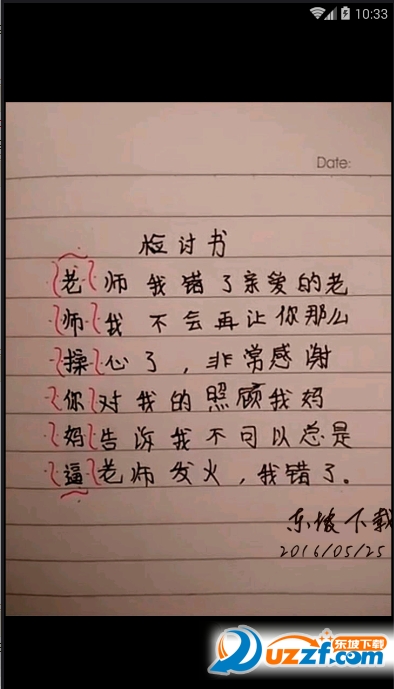 10:33
Date:
检讨书
老师我错了亲爱的老
师我不会再让你那么
操心了，非常感谢
你对我的照顾我妈
妈告诉我不可以总是
逼老师发火，我错了。
东坡下载
2016/05/25
东坡下载
uzzf.com